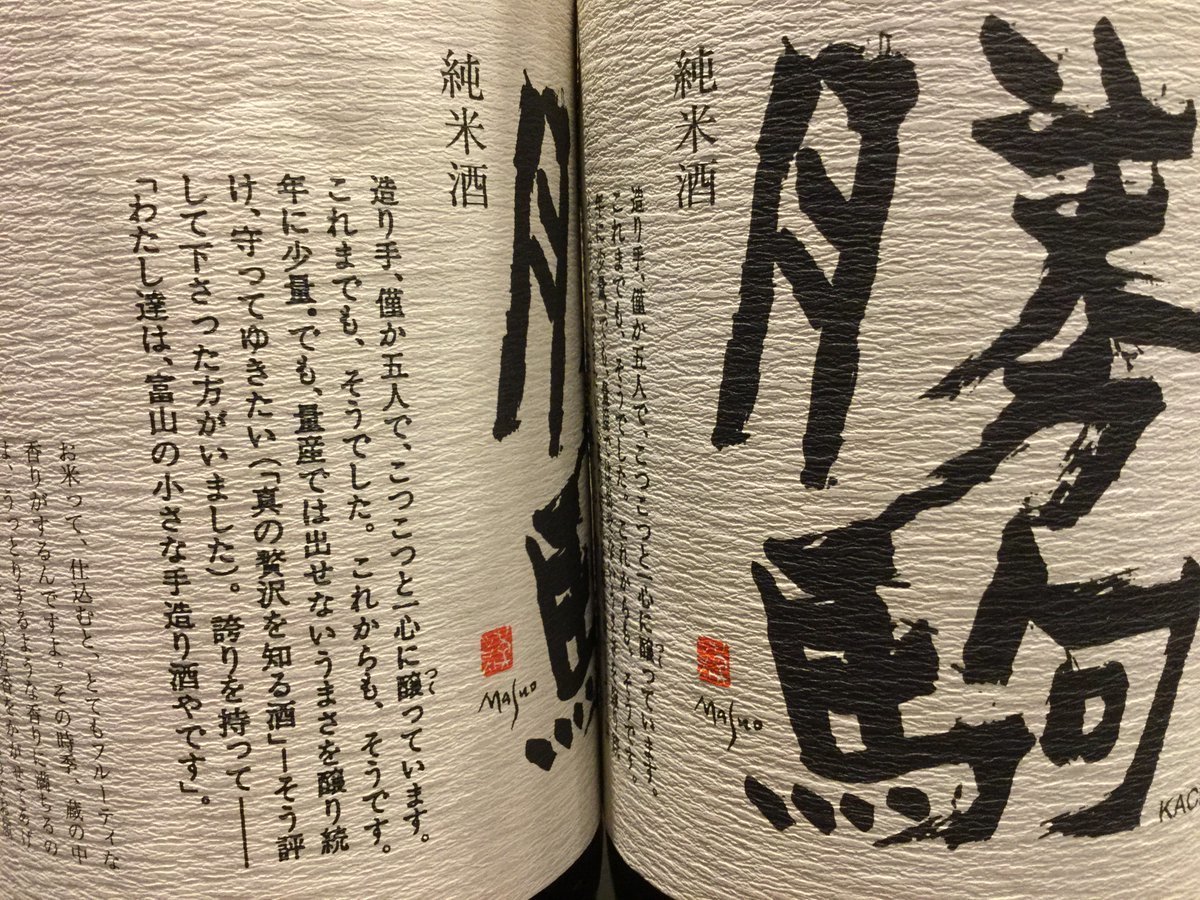 勝駒
KAC
純米酒
造り手、僅か五人で、こつこつと一心に醸っています。
これまでも、そうでした。これからも、そうです。
Masuo
純米酒
Masuo
造り手、僅か五人で、こつこつと一心に醸って
っています。
これまでも、そうでした。これからも、そうです。
年に少量。でも、量産では出せないうまさを醸り続
け、守ってゆきたい(「真の贅沢を知る酒」ーそう評
して下さった方がいました)。誇りを持って――
「わたし達は、富山の小さな手造り酒やです」。
お米って、仕込むと、とてもフルーティな
香りがするんですよ。その時季、蔵の中
は、うっとりするような香りに満ちるの